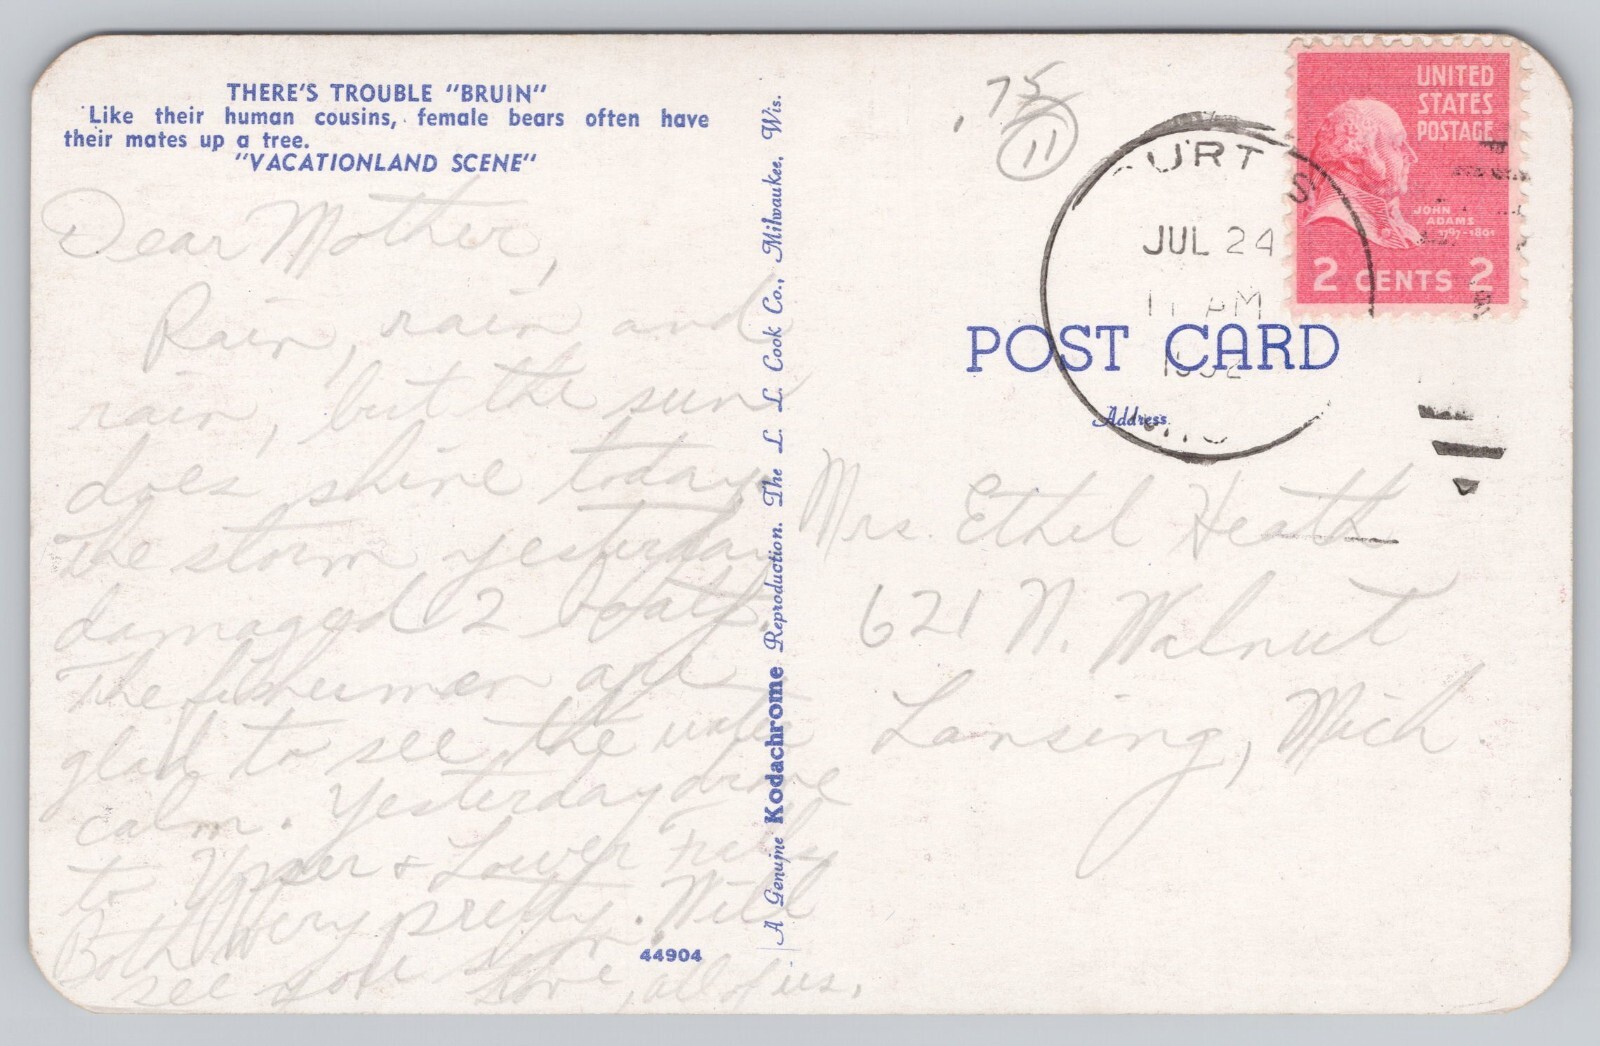 THERE'S TROUBLE "BRUIN"
Like their human cousins, female bears often have
their mates up a tree.
"VACATIONLAND SCENE"
Dear Mother,
Rain, rain and
rain, but the sun
does shine today.
The storm yesterday
damaged 2 boats.
The fishermen are
glad to see the water
calm. Yesterday drove
to Upper & Lower
Both very pretty. Will
see you
Love, all of us.
44904
A Genuine Kodachrome Reproduction. The L. L. Cook Co., Milwaukee, Wis.
.75
11
URTIS
JUL 24
11 AM
UNITED
STATES
POSTAGE
JOHN
ADAMS
1797-1801
2 CENTS 2
POST CARD
Address
Mrs. Ethel Heath
621 N. Walnut
Lansing, Mich.